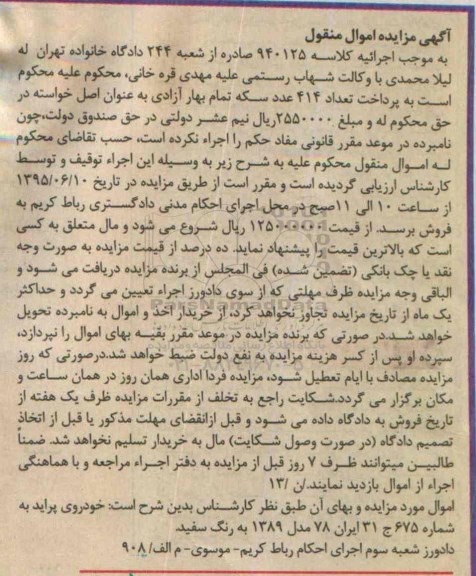 آگهی مزایده اموال منقول
به موجب اجرائیه کلاسه ۹۴۰۱۲۵ صادره از شعبه ۲۴۴ دادگاه خانواده تهران له
لیلا محمدی با وکالت شهاب رستمی علیه مهدی قره خانی، محکوم علیه محکوم
است به پرداخت تعداد ۴۱۴ عدد سکه تمام بهار آزادی به عنوان اصل خواسته در
حق محکوم له و مبلغ ۲۵۵۰۰۰۰ریال نیم عشر دولتی در حق صندوق دولت،چون
نامبرده در موعد مقرر قانونی مفاد حکم را اجراء نکرده است، حسب تقاضای محکوم
له اموال منقول محکوم علیه به شرح زیر به وسیله این اجراء توقیف و توسط
کارشناس ارزیابی گردیده است و مقرر است از طریق مزایده در تاریخ ۱۳۹۵/۰۶/۱۰
از ساعت ۱۰ الی ۱۱صبح در محل اجرای احکام مدنی دادگستری رباط کریم به
فروش برسد. از قیمت ۱۲۵۰۰۰۰۰۰ ریال شروع می شود و مال متعلق به کسی
است که بالاترین قیمت را پیشنهاد نماید. ده درصد از قیمت مزایده به صورت وجه
نقد یا چک بانکی (تضمین شده) فی المجلس از برنده مزایده دریافت می شود و
الباقی وجه مزایده ظرف مهلتی که از سوی دادورز اجراء تعیین می گردد و حداکثر
یک ماه از تاریخ مزایده تجاوز نخواهد کرد، از خریدار اخذ و اموال به نامبرده تحویل
خواهد شد.در صورتی که برنده مزایده در موعد مقرر بقیه بهای اموال را نپردازد،
سپرده او پس از کسر هزینه مزایده به نفع دولت ضبط خواهد شد.درصورتی که روز
مزایده مصادف با ایام تعطیل شود، مزایده فردا اداری همان روز در همان ساعت و
مکان برگزار می گردد.شکایت راجع به تخلف از مقررات مزایده ظرف یک هفته از
تاریخ فروش به دادگاه داده می شود و قبل ازانقضای مهلت مذکور یا قبل از اتخاذ
تصمیم دادگاه (در صورت وصول شکایت) مال به خریدار تسلیم نخواهد شد. ضمناً
طالبین میتوانند ظرف ۷ روز قبل از مزایده به دفتر اجراء مراجعه و با هماهنگی
اجراء از اموال بازدید نمایند./ن /۱۳
اموال مورد مزایده و بهای آن طبق نظر کارشناس بدین شرح است: خودروی پراید به
شماره ۶۷۵ ج ۳۱ ایران ۷۸ مدل ۱۳۸۹ به رنگ سفید.
دادورز شعبه سوم اجرای احکام رباط کریم- موسوی- م الف/ ۹۰۸
ParsNamadData